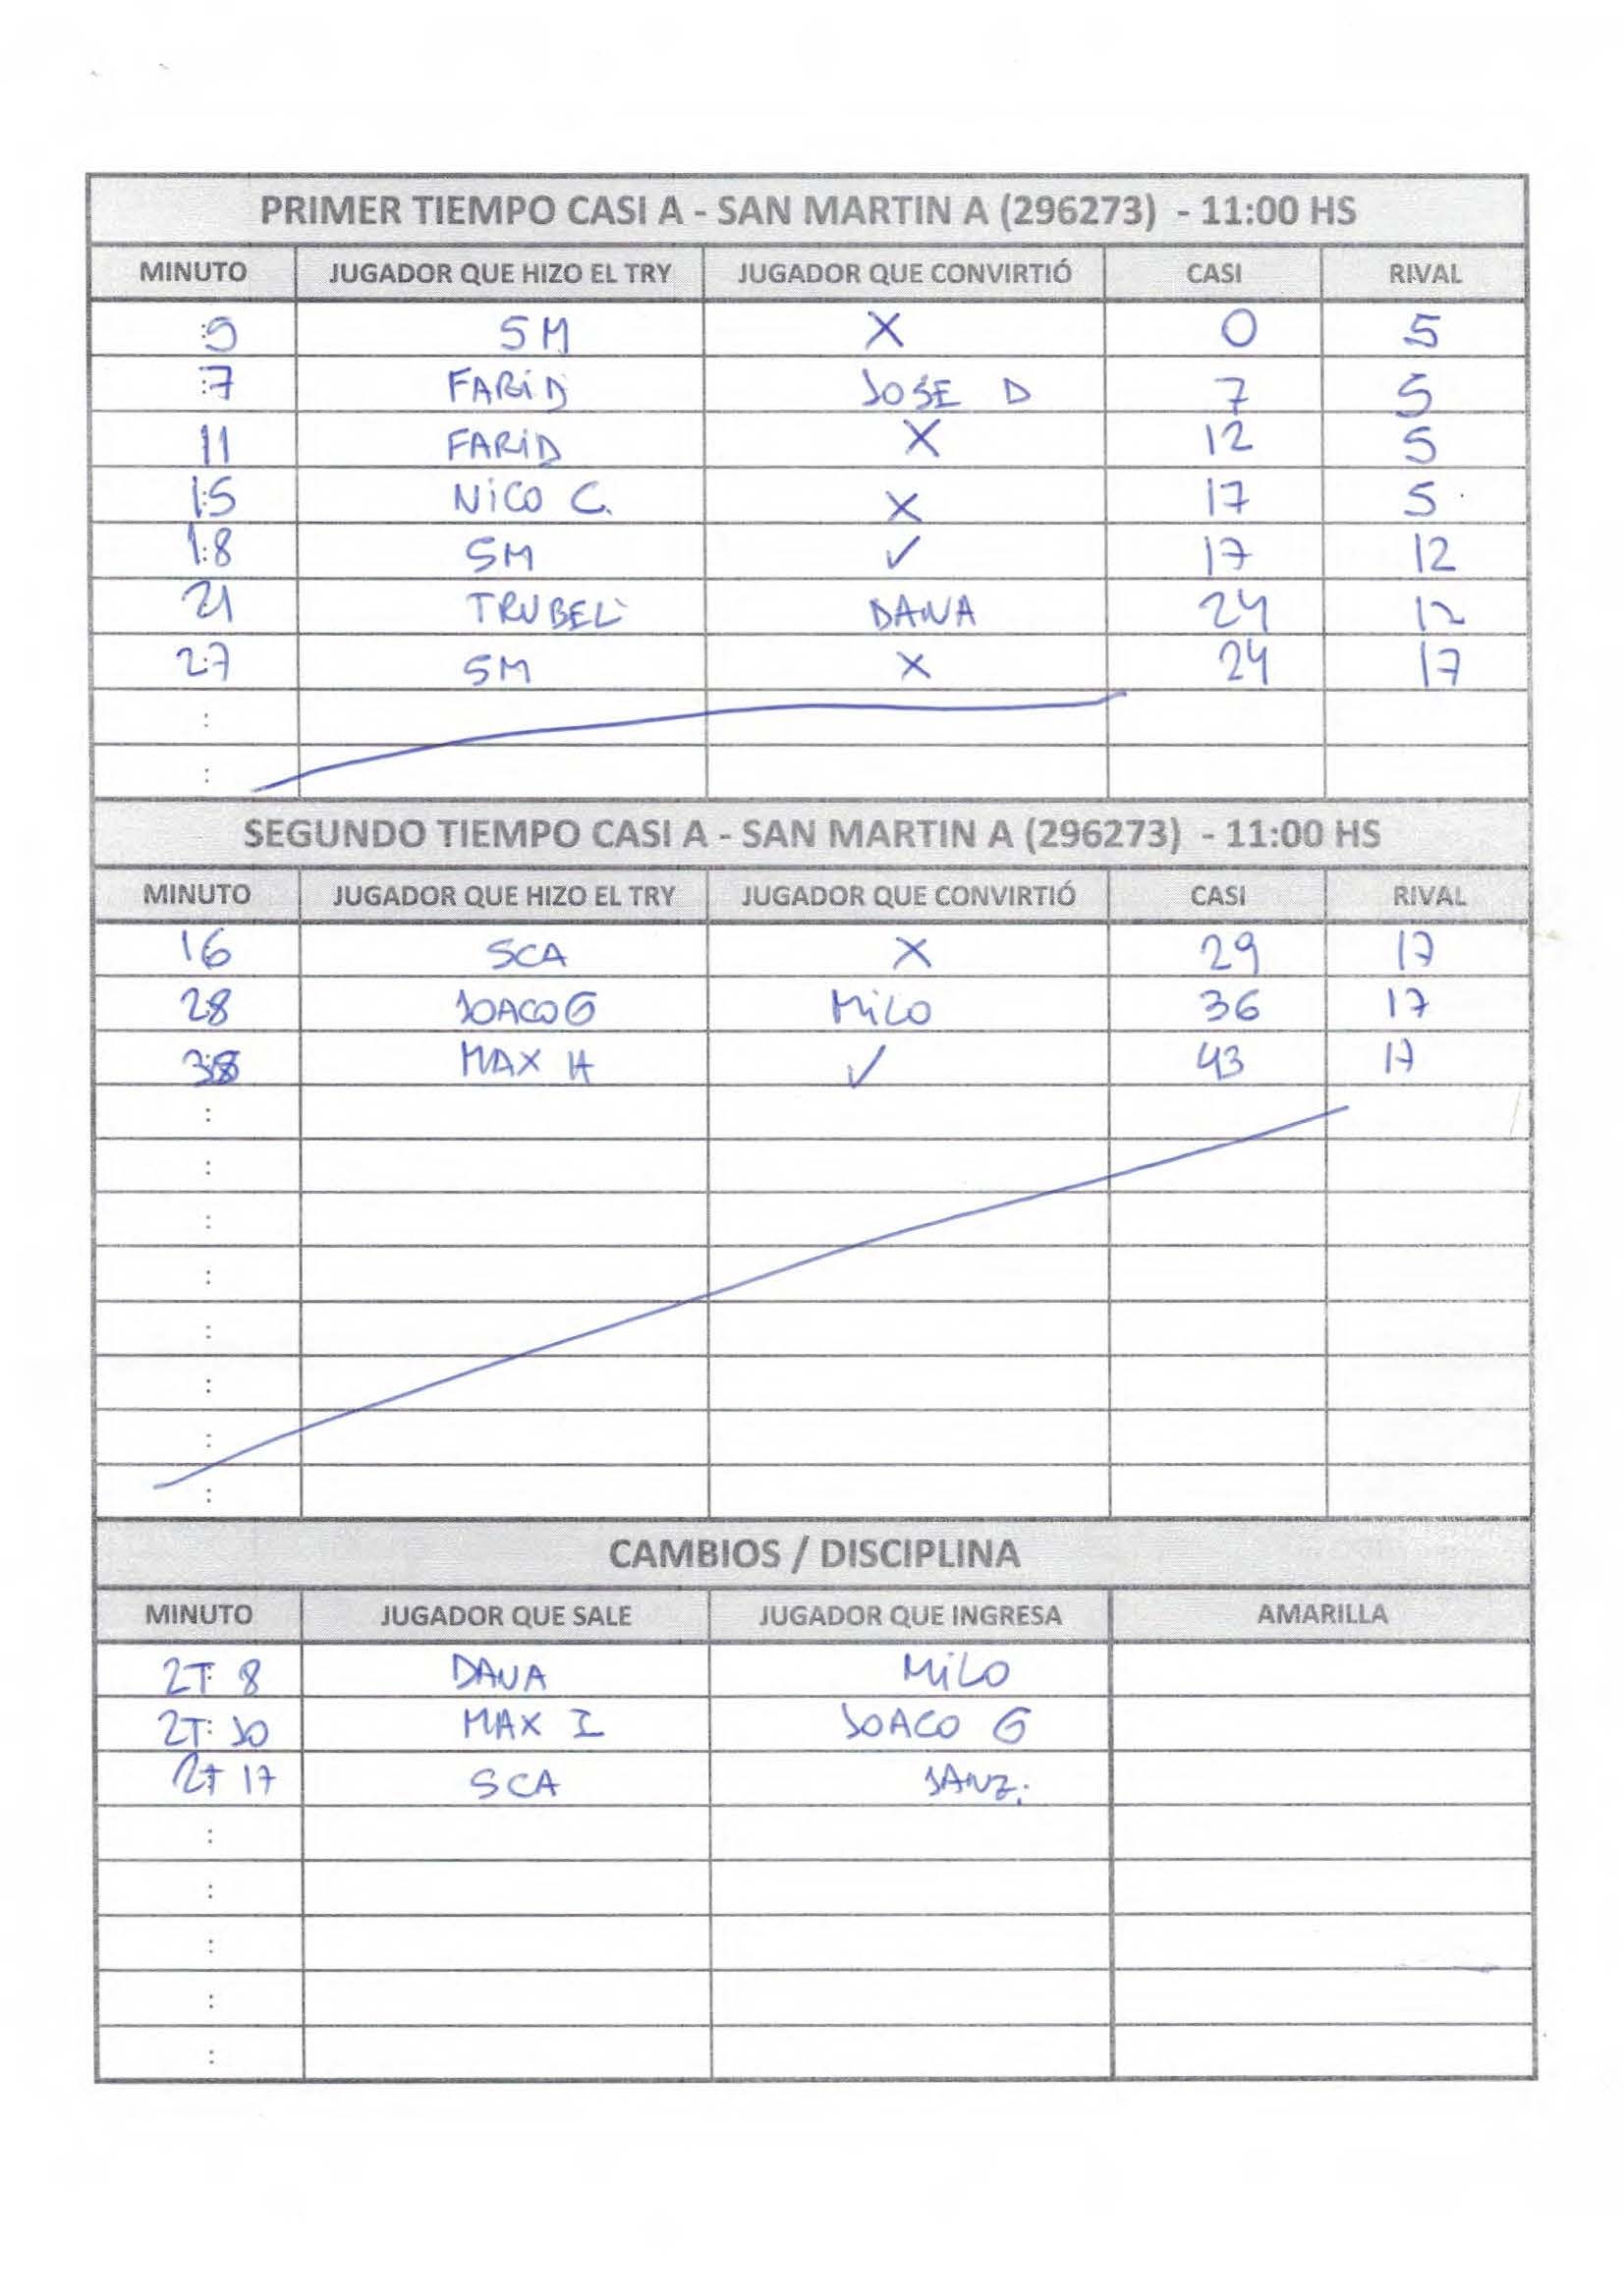 PRIMER TIEMPO CASI A - SAN MARTIN A (296273) - 11:00 HS
MINUTO JUGADOR QUE HIZO EL TRY JUGADOR QUE CONVIRTIÓ CASI RIVAL
:5 SM X 0 5
:7 FARID JOSE D 7 5
11 FARID X 12 5
1:5 NICO C. X 17 5
1:8 SM ✓ 17 12
21 TRUBEL DANA 24 12
2:7 SM X 24 17
:
:
SEGUNDO TIEMPO CASI A - SAN MARTIN A (296273) - 11:00 HS
MINUTO JUGADOR QUE HIZO EL TRY JUGADOR QUE CONVIRTIÓ CASI RIVAL
16 SCA X 29 17
28 JOACO G MILO 36 17
MAX H ✓ 43 17
:
:
:
:
:
:
:
:
CAMBIOS / DISCIPLINA
MINUTO JUGADOR QUE SALE JUGADOR QUE INGRESA AMARILLA
2T 8 DANA MILO
2T: 10 MAX I JOACO G
2T 17 SCA SANZ.
:
:
:
:
: